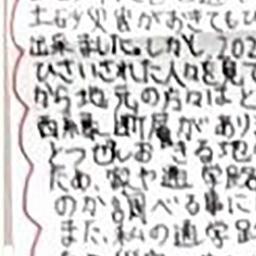 土砂災害がおきてもひ
出来ました。しかし、202
ひさいされた人々を見て
から地元の方々はと
があり
とつぜんおきる地
ため、家や通学路
のか調べる事に
また、私の通学路